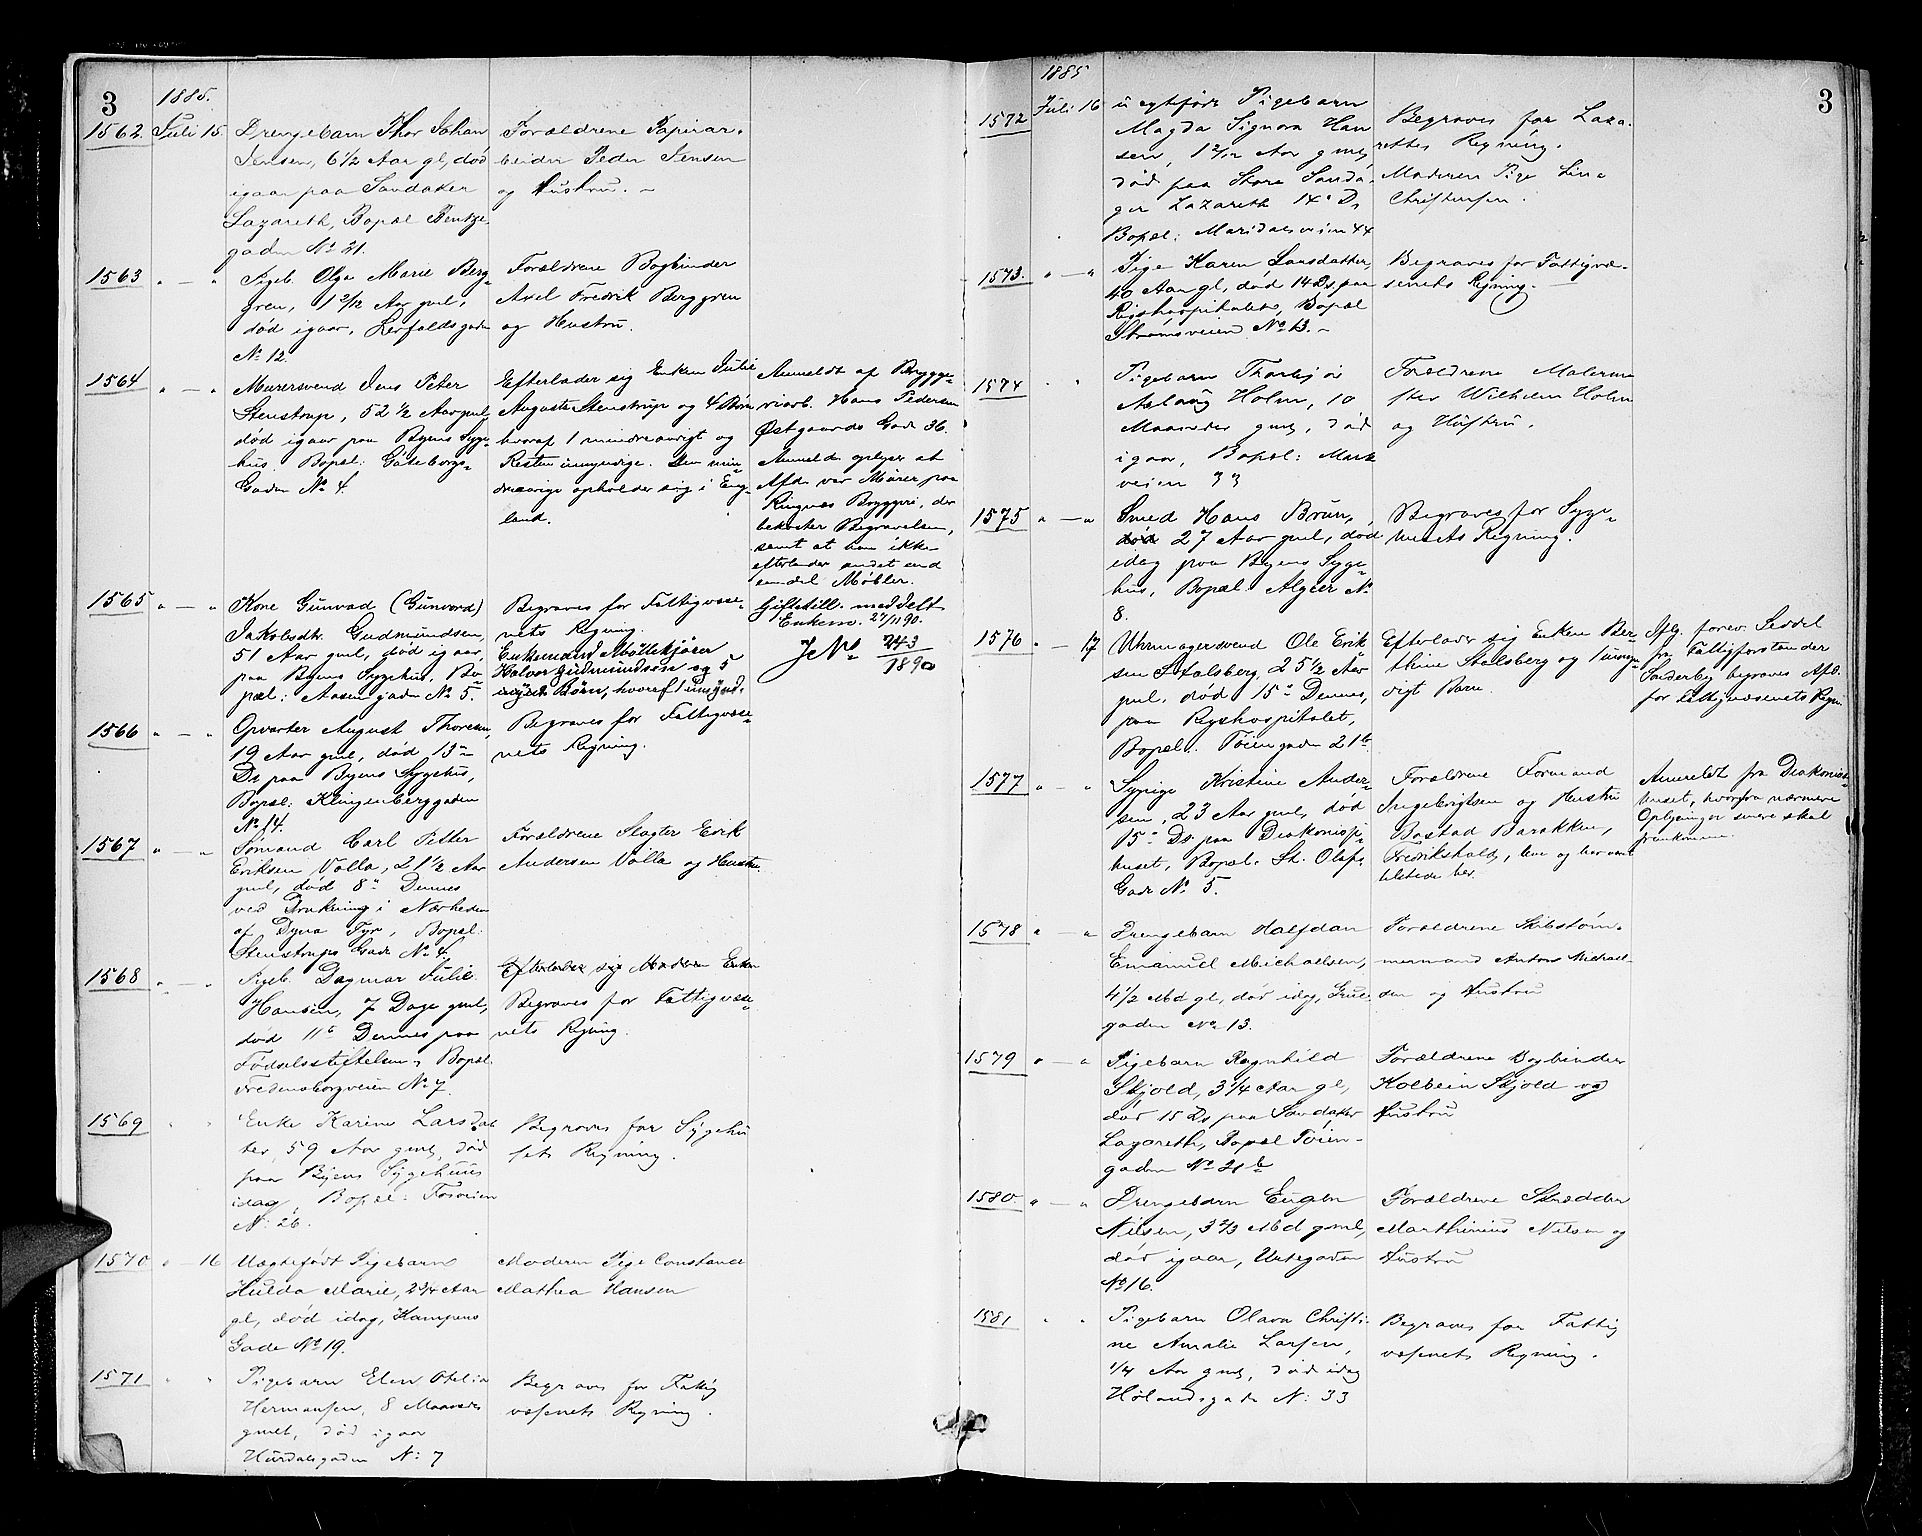 3
1885.
1562. Juli 15. Drengebarn Thor Johan
Jensen, 6 1/2 Aar gl, død
igaar paa Sandaker
Lazareth, Bopæl Bentze
gaden No 21.
Forældrene Papirar-
beider Peder Jensen
og Hustru. –
1563 " — " Pigeb. Olga Marie Berg-
gren, 1 2/12 Aar gml,
død igaar, Lerfaldsgaden
No 12.
Forældrene Bogbinder
Axel Fredrik Berggren
og Hustru.
1564 " — " Murersvend Jens Peter
Stenstrup, 52 1/2 Aar gml,
død igaar paa Byens Syge-
hus. Bopæl: Gøteborgs-
Gaden No 4.
Efterlader sig Enken Julie
Augusta Stenstrup og 4 Børn
hvoraf 1 mindreaarigt og
Resten umyndige. Den min-
dreaarige opholder sig i Eng-
land.
Anmeldt af Brygge-
riarb. Hans Pedersen
Østgaards Gade 36.
Anmeld. oplyser at
Afd. var Murer paa
Ringnæs Bryggeri, der
bekoster Begravelsen,
samt at han ikke
efterlader andet end
endel Møbler.
Giftetill. meddelt
Enkem. 27/11 90.
JNo 243/1890
1565 " — " Kone Gunvad (Gunvord)
Jakobsdtr. Gudmundsen,
51 Aar gml, død igaar,
paa Byens Sygehus. Bo-
pæl: Aasengaden No 5.
Begraves for Fattigvæse-
nets Regning.
Enkemand Møllekjører
Halvor Gudmundsen og 5
Børn, hvoraf 1 umynd.
1566 " — " Opvarter August Thoresen,
19 Aar gml, død 13de
Ds paa Byens Sygehus,
Bopæl: Klingenberggaden
No 14.
Begraves for Fattigvæse-
nets Regning.
1567 " — " Sømand Carl Petter
Eriksen Volla, 21 1/2 Aar
gml, død 8de Dennes
ved Drukning i Nærheden
af Dyna Fyr, Bopæl:
Stenstrups Gade No 4.
Forældrene Slagter Erik
Andersen Volla og Hustru.
1568 " — " Pigeb. Dagmar Julie
Hansen, 7 Dage gml,
død 11te Dennes paa
Fødselsstiftelsen, Bopæl
Fredensborgveien No 7.
Efterlader sig Moderen Enken
Begraves for Fattigvæse-
nets Regning.
1569 " " Enke Karine Larsdat
ter, 59 Aar gml, død
paa Byens Sygehuus
idag, Bopæl: Fosveien
No: 26.
Begraves for Sygehu
sets Regning.
1570 " — 16 Uægtefødt Pigebarn
Hulda Marie, 2 3/4 Aar
gl, død idag, Kampens
Gade No 19.
Moderen Pige Constance
Mathea Hansen
1571 " " Pigebarn Elen Otelia
Hermansen, 8 Maaneder
gmel, død igaar
Hurdalsgaden No: 7
Begraves for Fattig
væsenets Regning.
3
1885
1572 Juli 16 uegtefødt Pigebarn
Magda Signora Han
sen, 1 2/12 Aar gmel,
død paa Store Sanda-
ger Lazareth 14de Ds
Bopæl: Maridalsveien 44
Begraves for Laza-
rettes Regning.
Moderen Pige Line
Christensen.
1573. " — " Pige Karen Larsdatter,
40 Aar gl, død 14 Ds paa
Rigshospitalet, Bopæl
Strømsveien No 13. –
Begraves for Fattigvæ-
senets Regning. –
1574 " " Pigebarn Thorbjør
Aslaug Holm, 10
Maaneder gmel, død
igaar, Bopæl: Mark
veien 33
Forældrene Malerme
ster Wilhelm Holm
og Hustru.
1575 " — " Smed Hans Brun,
død 27 Aar gml, død
idag paa Byens Syge-
hus, Bopæl Algier No
8.
Begraves for Syge-
husets Regning.
1576 " — 17 Uhrmagersvend Ole Erik
sen Stalsberg, 25 1/2 Aar
gml, død 15de Dennes,
paa Rigshospitalet,
Bopæl: Tøiengaden 21b
Efterlader sig Enken Ber-
thine Stalsberg og 1 umyn-
digt Barn.
Iflg. forev. Seddel
fra Fattigforstander
Sønderby begraves Afd.
for Fattigvæsenets Regn.
1577 " — " Sypige Kristine Ander-
sen, 23 Aar gml, død
15de Ds paa Diakonisse-
huset, Bopæl. St. Olafs
Gade No 5.
Forældrene Formand
Ingebrigtsen og Hustru
Bostad Barakken,
Fredrikshald, leve og har været
tilstede her.
Anmeldt fra Diakonisse-
huset, hvorfra nærmere
Oplysninger senere skal
fremkomme.
1578 " — " Drengebarn Halfdan
Emanuel Michaelsen,
4 1/2 Md gl, død idag, Grue-
gaden No 13.
Forældrene Skibstøm-
mermand Anton Michael-
sen og Hustru
1579 " — " Pigebarn Ragnhild
Skjold, 3 1/4 Aar gl,
død 15 Ds paa Sandaker
Lazareth, Bopæl Tøien-
gaden No 21b
Forældrene Bogbinder
Kolbein Skjold og
Hustru
1580 " — " Drengebarn Eugen
Nilsen, 3 2/3 Md gml,
død igaar, Urtegaden
No 16.
Forældrene Skrædder
Marthinius Nilsen og
Hustru
1581 " " Pigebarn Olava Christi-
ne Amalie Larsen,
1/4 Aar gmel, død idag
Hølandsgade No: 33
Begraves for Fattig
væsenets Regning.